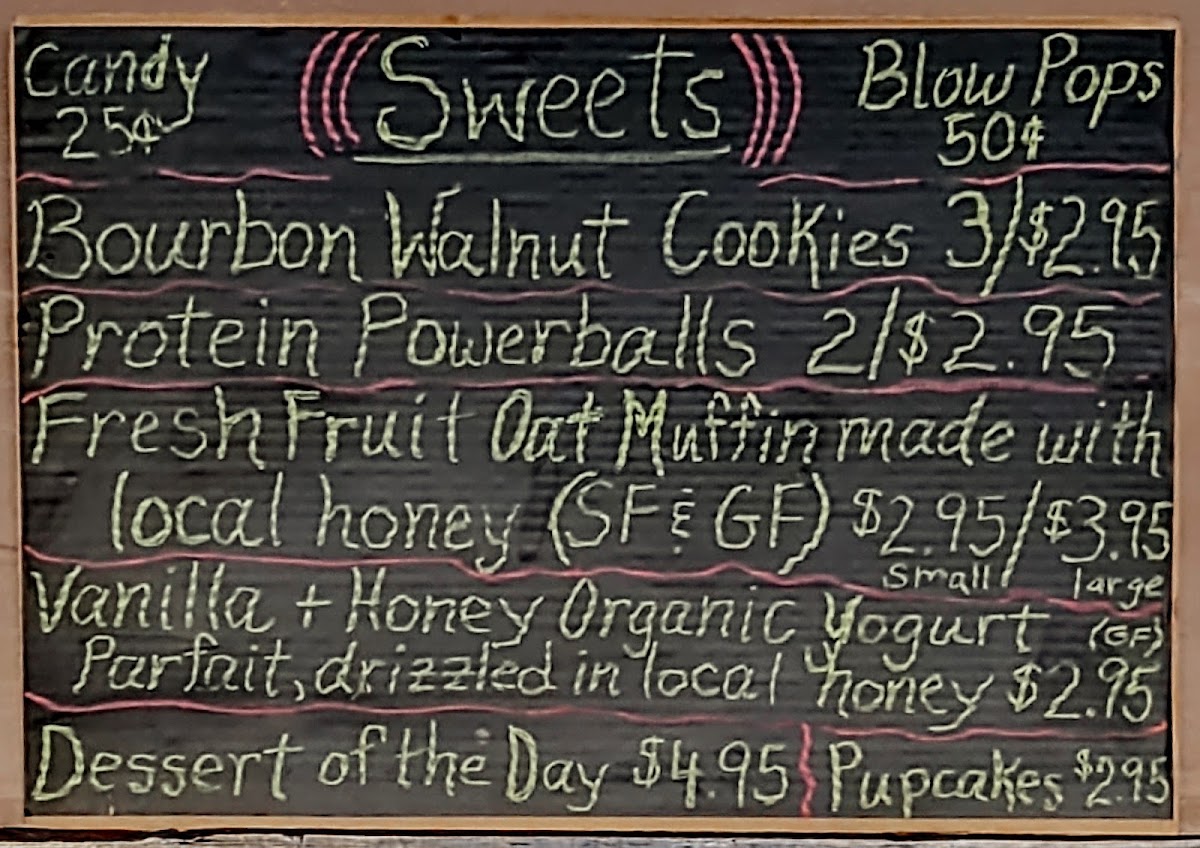 Candy Sweets Blow Pops
25¢ 50¢
Bourbon Walnut Cookies 3/$2.95
Protein Powerballs 2/$2.95
Fresh Fruit Oat Muffin made with
local honey (SF & GF) $2.95/$3.95
small large
Vanilla + Honey Organic Yogurt (GF)
Parfait, drizzled in local honey $2.95
Dessert of the Day $4.95 Pupcakes $2.95